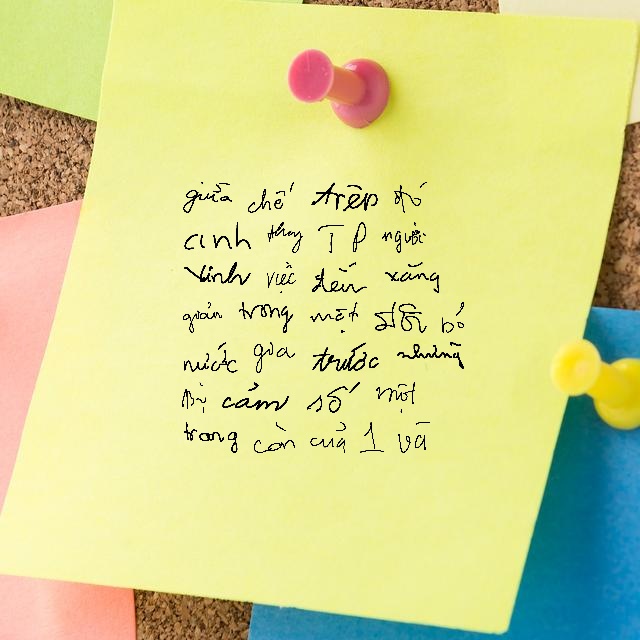 giữa chế trên đó
anh thay TP người
Vinh việc đến xăng
giản trong một đôi bó
nước gia trước những
bị cảm số một
trong còn cuả 1 và